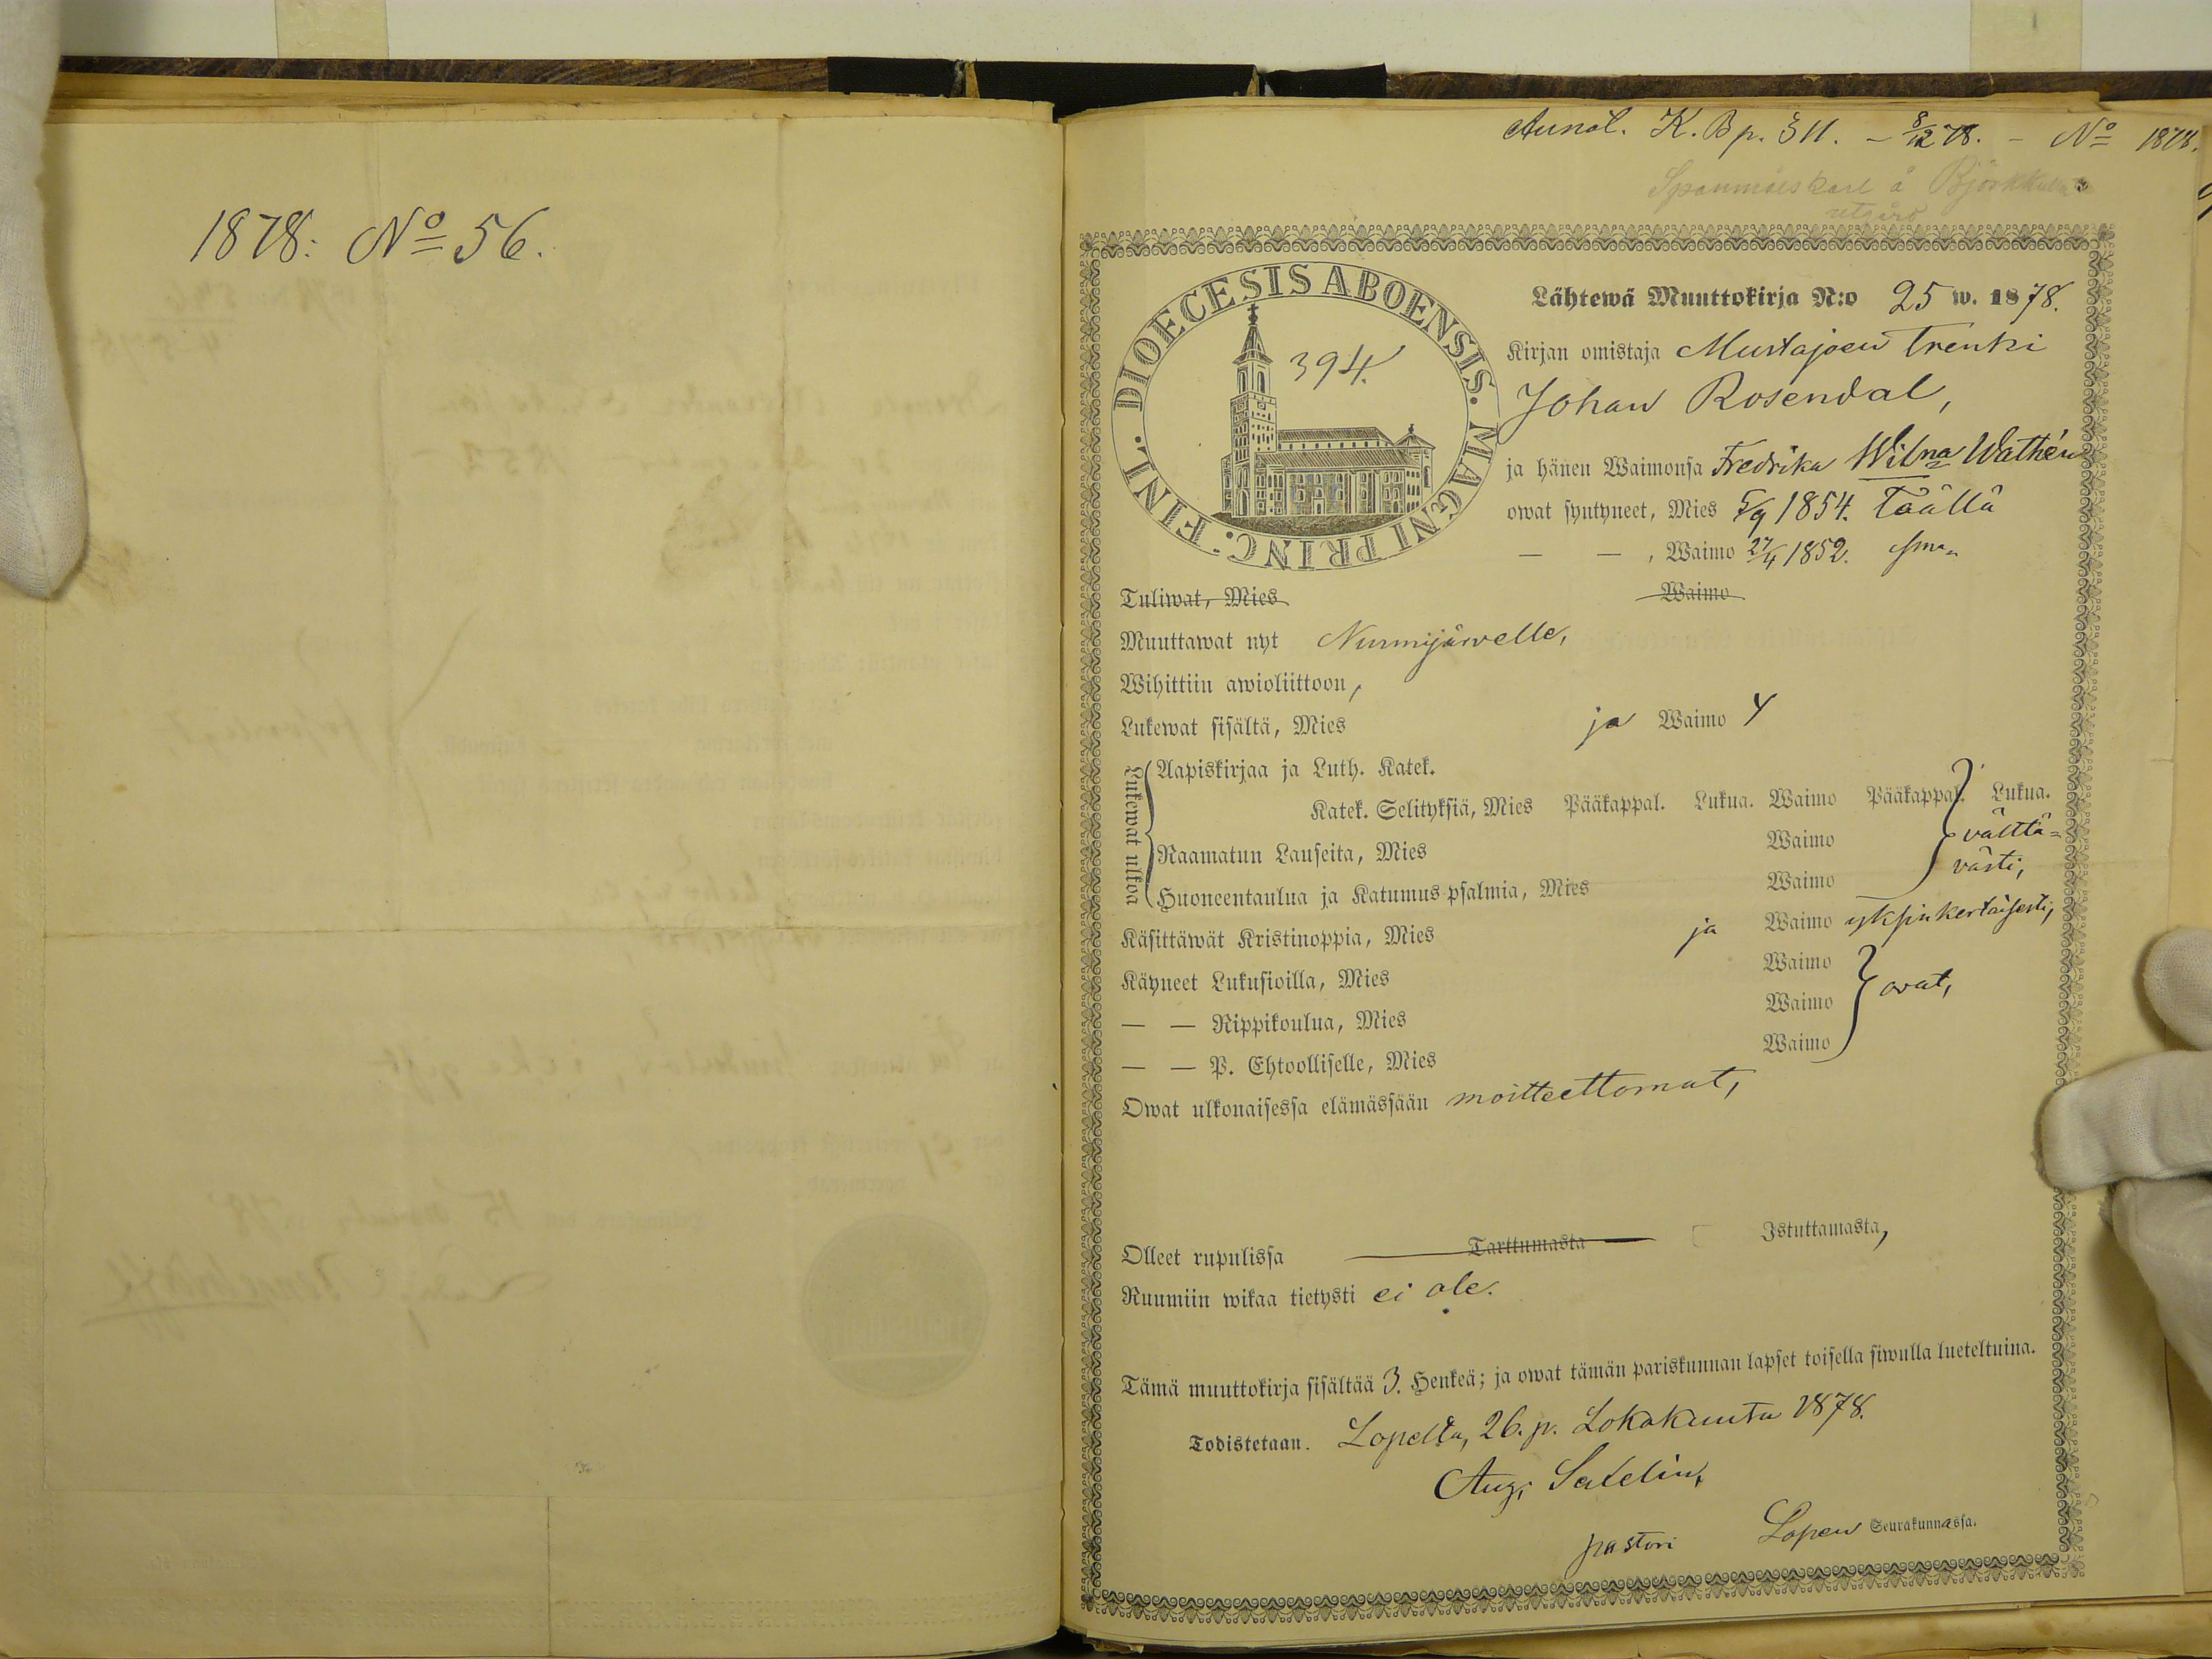 1878: No 56.
Annot. K. B p. 311. - 8/12 78. - No 1878.
Lähtewä Muuttokirja N:o 25 w. 1878.
FINL. DIOECESIS ABOENSIS. MAGNI PRINC:
394.
Kirjan omistaja Mustajoen trenki
Johan Rosendal,
ja hänen Waimonsa Fredrika Wilna Wathén
owat syntyneet, Mies 5/9 1854. täällä
— — , Waimo 27/4 1852.
Tuliwat, Mies Waimo
Muuttawat nyt Nurmijärvelle,
Wihittiin awioliittoon,
Lukewat sisältä, Mies ja Waimo
Lukewat ulkoa
Aapiskirjaa ja Luth. Katek.
Katek. Selityksiä, Mies Pääkappal. Lukua. Waimo Pääkappal. Lukua.
Raamatun Lauseita, Mies Waimo välttä=
Huoneentaulua ja Katumus-psalmia, Mies Waimo västi,
Käsittäwät Kristinoppia, Mies ja Waimo yksinkertaisesti,
Käyneet Lukusioilla, Mies Waimo
— — Rippikoulua, Mies Waimo ovat,
— — P. Ehtoolliselle, Mies Waimo
Owat ulkonaisessa elämässään moitteettomat,
Olleet rupulissa Tarttumasta Istuttamasta,
Ruumiin wikaa tietysti ei ole.
Tämä muuttokirja sisältää 3. Henkeä; ja owat tämän pariskunnan lapset toisella siwulla lueteltuina.
Todistetaan. Lopelta, 26. p. Lokakuuta 1878.
Aug. Salelin,
pastori Lopen Seurakunnassa.